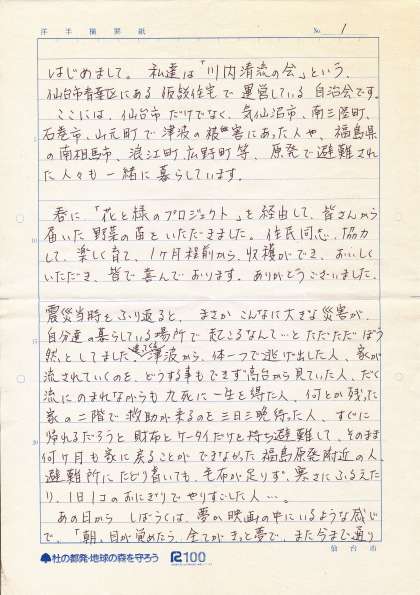 洋半横罫紙 No. 1
はじめまして。私達は「川内清流の会」という、
仙台市青葉区にある仮設住宅で運営している自治会です。
ここには、仙台市だけでなく、気仙沼市、南三陸町、
石巻市、山元町で津波の被害にあった人や、福島県
の南相馬市、浪江町、広野町等、原発で避難され
た人々も一緒に暮らしています。
春に、「花と緑のプロジェクト」を経由して、皆さんから
10 届いた野菜の苗をいただきました。住民同志、協力
して、楽しく育て、1ヶ月程前から、収穫ができ、おいしく
いただき、皆で喜んでおります。ありがとうございました。
震災当時をふり返ると、まさかこんなに大きな災害が、
自分達の暮らしている場所で起こるなんて…とただただぼう
15 然としてました。迫る津波から、体一つで逃げ出した人、家が
流されていくのを、どうする事もできず高台から見ていた人、だく
流にのまれながらも九死に一生を得た人、何とか残った
家の二階で救助が来るのを三日三晩待った人、すぐに
帰れるだろうと財布とケータイだけを持ち避難して、そのまま
20 何ヶ月も家に戻ることができなかった福島原発附近の人。
避難所にたどり着いても、毛布が足りず、寒さにふるえた
り、1日1コのおにぎりでやりすごした人…。
あの日から しばらくは、夢か映画の中にいるような感じ
で、「朝、目が覚めたら、全てがきっと夢で、また今まで通り
杜の都発・地球の森を守ろう R100 仙台市